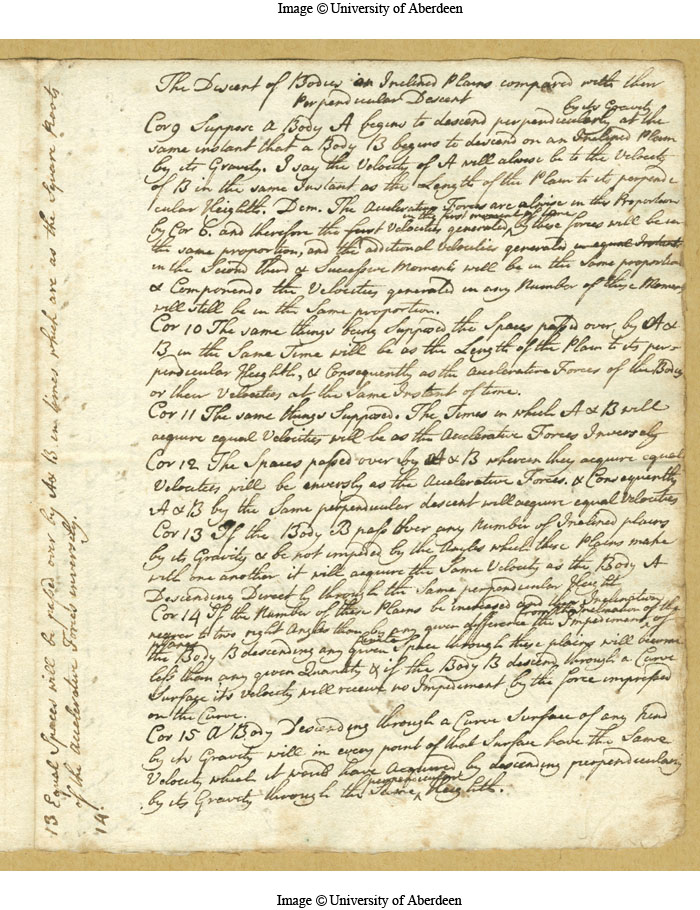 Image © University of Aberdeen
The Descent of Bodies on Inclined Plains compared with their
Perpendicular Descent
by its Gravity
Cor 9 Suppose a Body A begins to descend perpendicularly at the
same instant that a Body B begins to descend on an Inclined Plain
by its Gravity. I say the Velocity of A will alwise be to the Velocity
of B in the same Instant as the Length of the Plain to its perpendi
cular Heighth. Dem. The Accelerating Forces are alwise in this Proportion
in the first moment of time
by Cor 6. and therefore the first Velocities generated by these forces will be in
the same proportion, and the additional Velocities generated in equal Instants
in the Second Third & Successive Moments will be in the Same proportion
& Componendo the Velocities generated in any Number of these Moments
will still be in the Same proportion.
Cor 10 The same things being Supposed the Spaces passed over by A &
B in the Same Time will be as the Length of the Plain to its per-
pendicular Heighth, & Consequently as the Accelerative Forces of the Bodys
or their Velocities at the Same Instant of time.
Cor 11 The same things Supposed. The Times in which A & B will
acquire equal Velocities will be as the Accelerative Forces Inversely
Cor 12 The Spaces passed over by A & B wherein they acquire equal
Velocities will be inversly as the Accelerative Forces. & Consequently
A & B by the Same perpendicular descent will acquire equal Velocities
Cor 13 If the Body B pass over any Number of Inclined plains
by its Gravity & be not impeded by the Angles which these Plains make
with one another it will acquire the Same Velocity as the Body A
Descending Directly through the Same perpendicular Height
Cor 14 If the Number of these Plains be increased and their Inclination
from the inclination of the
nearer to two right Angles than by any given difference the Impediment of
the Body B descending any given Space through these plains will become
less than any given Quantity & if the Body B descend through a Curve
Surface its Velocity will receive no Impediment by the force impressed
on the Curve.
Cor 15 A Body Descending through a Curve Surface of any kind
by its Gravity will in every point of that Surface have the Same
Velocity which it would have Acquired by descending perpendicularly
perpendicular
by its Gravity through the Same Heighth.
13 Equal Spaces will be passed over by A & B in times which are as the Square Roots
of the Accelerative Forces inversely.
14.
Image © University of Aberdeen